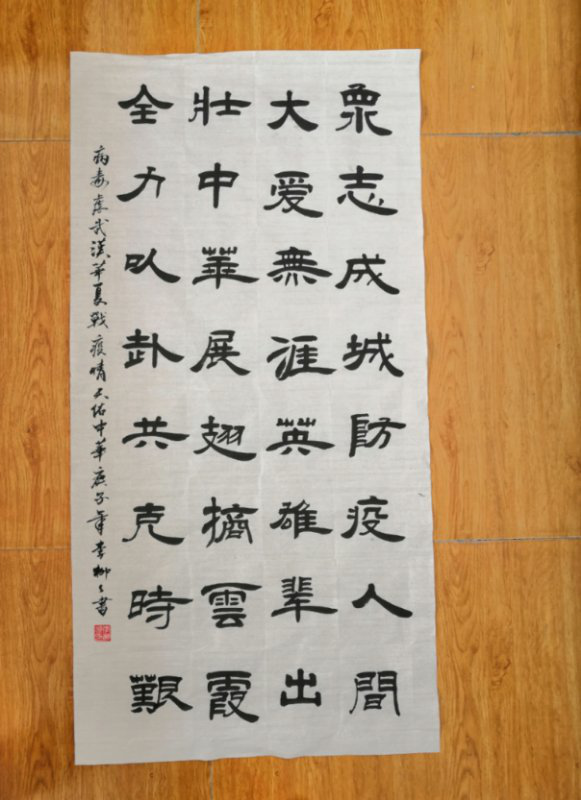 衆志成城防疫人間
大爱無涯英雄辈出
壮中華展翅摘雲霞
全力以赴共克時艱
病毒虐武漢華夏戰疫情天佑中華庚子年李柳之書